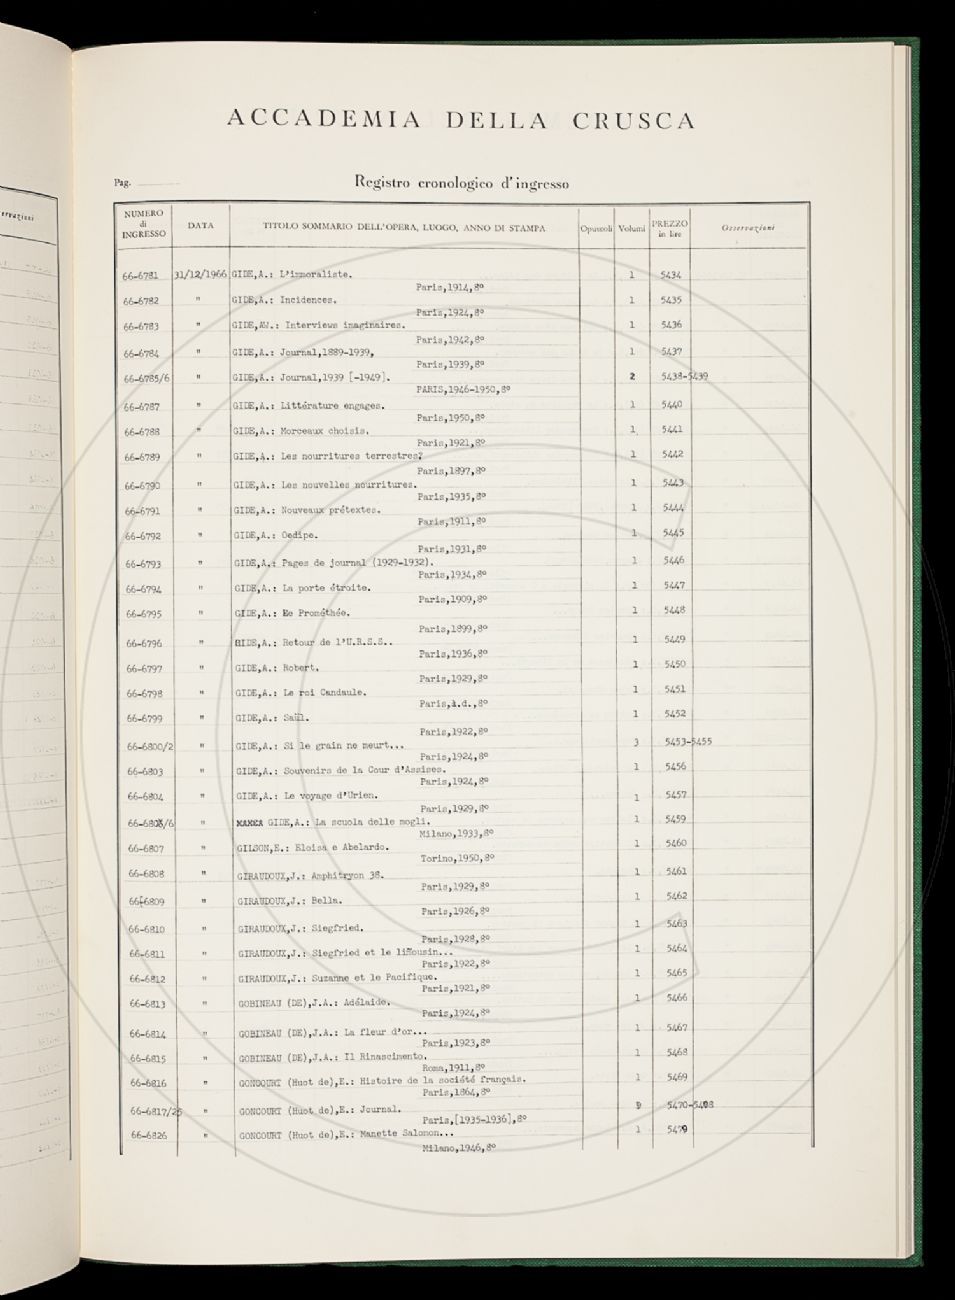 ACCADEMIA DELLA CRUSCA
Pag.
Registro cronologico d'ingresso
NUMERO di INGRESSO DATA TITOLO SOMMARIO DELL'OPERA, LUOGO, ANNO DI STAMPA Opuscoli Volumi PREZZO in lire Osservazioni
66-6781 31/12/1966 GIDE,A.: L'immoraliste. 1 5434
Paris,1914,8º
66-6782 " GIDE,A.: Incidences. 1 5435
Paris,1924,8º
66-6783 " GIDE,AW.: Interviews imaginaires. 1 5436
Paris,1942,8º
66-6784 " GIDE,A.: Journal,1889-1939, 1 5437
Paris,1939,8º
66-6785/6 " GIDE,A.: Journal,1939 [-1949]. 2 5438-5439
PARIS,1946-1950,8º
66-6787 " GIDE,A.: Littérature engages. 1 5440
Paris,1950,8º
66-6788 " GIDE,A.: Morceaux choisis. 1 5441
Paris,1921,8º
66-6789 " GIDE,A.: Les nourritures terrestres? 1 5442
Paris,1897,8º
66-6790 " GIDE,A.: Les nouvelles nourritures. 1 5443
Paris,1935,8º
66-6791 " GIDE,A.: Nouveaux prétextes. 1 5444
Paris,1911,8º
66-6792 " GIDE,A.: Oedipe. 1 5445
Paris,1931,8º
66-6793 " GIDE,A.: Pages de journal (1929-1932). 1 5446
Paris,1934,8º
66-6794 " GIDE,A.: La porte étroite. 1 5447
Paris,1909,8º
66-6795 " GIDE,A.: Ee Prométhée. 1 5448
Paris,1899,8º
66-6796 " GIDE,A.: Retour de l'U.R.S.S.. 1 5449
Paris,1936,8º
66-6797 " GIDE,A.: Robert. 1 5450
Paris,1929,8º
66-6798 " GIDE,A.: Le roi Candaule. 1 5451
Paris,à.d.,8º
66-6799 " GIDE,A.: Saül. 1 5452
Paris,1922,8º
66-6800/2 " GIDE,A.: Si le grain ne meurt... 3 5453-5455
Paris,1924,8º
66-6803 " GIDE,A.: Souvenirs de la Cour d'Assises. 1 5456
Paris,1924,8º
66-6804 " GIDE,A.: Le voyage d'Urien. 1 5457
Paris,1929,8º
66-6805/6 " GIDE,A.: La scuola delle mogli. 1 5459
Milano,1933,8º
66-6807 " GILSON,E.: Eloisa e Abelardo. 1 5460
Torino,1950,8º
66-6808 " GIRAUDOUX,J.: Amphitryon 38. 1 5461
Paris,1929,8º
66-6809 " GIRAUDOUX,J.: Bella. 1 5462
Paris,1926,8º
66-6810 " GIRAUDOUX,J.: Siegfried. 1 5463
Paris,1928,8º
66-6811 " GIRAUDOUX,J.: Siegfried et le limousin... 1 5464
Paris,1922,8º
66-6812 " GIRAUDOUX,J.: Suzanne et le Pacifique. 1 5465
Paris,1921,8º
66-6813 " GOBINEAU (DE),J.A.: Adélaide. 1 5466
Paris,1924,8º
66-6814 " GOBINEAU (DE),J.A.: La fleur d'or... 1 5467
Paris,1923,8º
66-6815 " GOBINEAU (DE),J.A.: Il Rinascimento. 1 5468
Roma,1911,8º
66-6816 " GONCOURT (Huot de),E.: Histoire de la société français. 1 5469
Paris,1864,8º
66-6817/25 " GONCOURT (Huot de),E.: Journal. 9 5470-5478
Paris,[1935-1936],8º
66-6826 " GONCOURT (Huot de),E.: Manette Salomon... 1 5479
Milano,1946,8º